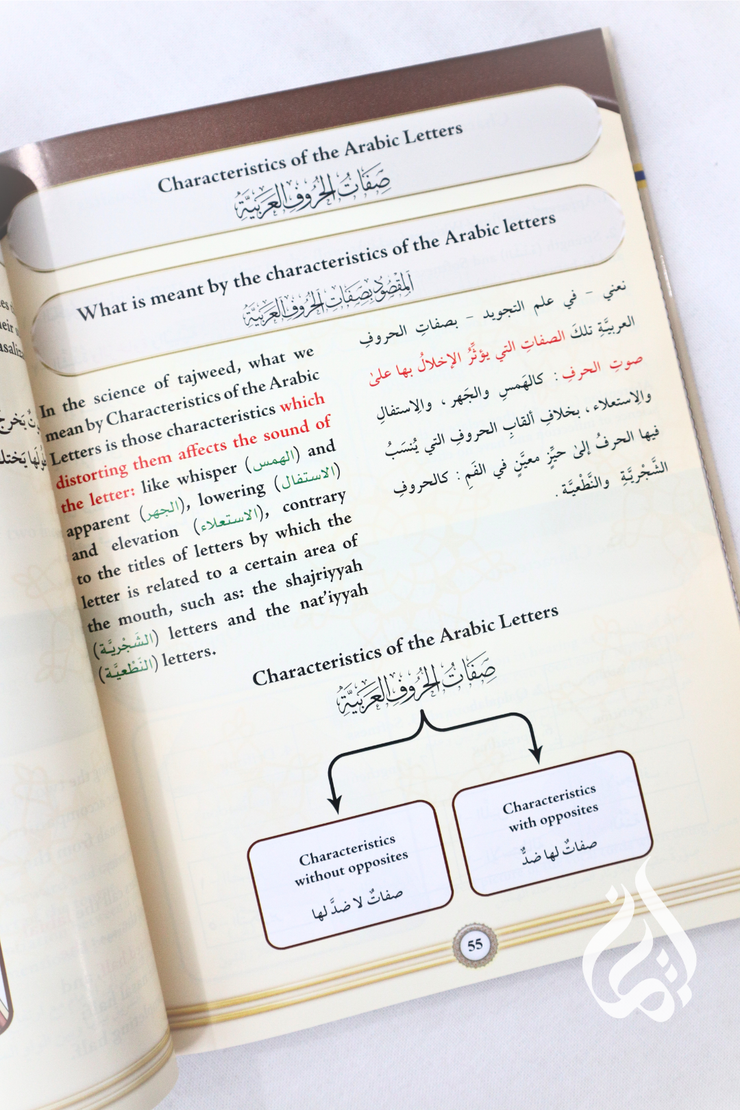 Characteristics of the Arabic Letters
صِفَاتُ الحُرُوفِ العَرَبِيَّةِ
What is meant by the characteristics of the Arabic letters
المَقصُودُ بِصِفَاتِ الحُرُوفِ العَرَبِيَّةِ
In the science of tajweed, what we
mean by Characteristics of the Arabic
Letters is those characteristics which
distorting them affects the sound of
the letter: like whisper (الهمس) and
apparent (الجهر), lowering (الاستفال)
and elevation (الاستعلاء), contrary
to the titles of letters by which the
letter is related to a certain area of
the mouth, such as: the shajriyyah
(الشَجْريَّة) letters and the nat'iyyah
(النَطْعيَّة) letters.
نعني - في علم التجويد - بصفاتِ الحروفِ
العربيَّةِ تلكَ الصفاتِ التي يؤثِّرُ الإخلالُ بها علىٰ
صوتِ الحرفِ: كالهَمسِ والجَهر، والِاستفالِ
والِاستعلاء، بخلافِ ألقابِ الحروفِ التي يُنسَبُ
فيها الحرفُ إلىٰ حيِّزٍ معيَّنٍ في الفَمِ: كالحروفِ
الشَّجْريَّةِ والنَّطْعيَّة.
Characteristics of the Arabic Letters
صِفَاتُ الحُرُوفِ العَرَبِيَّةِ
Characteristics
without opposites
صفاتٌ لا ضدَّ لها
Characteristics
with opposites
صفاتٌ لها ضدٌّ
55